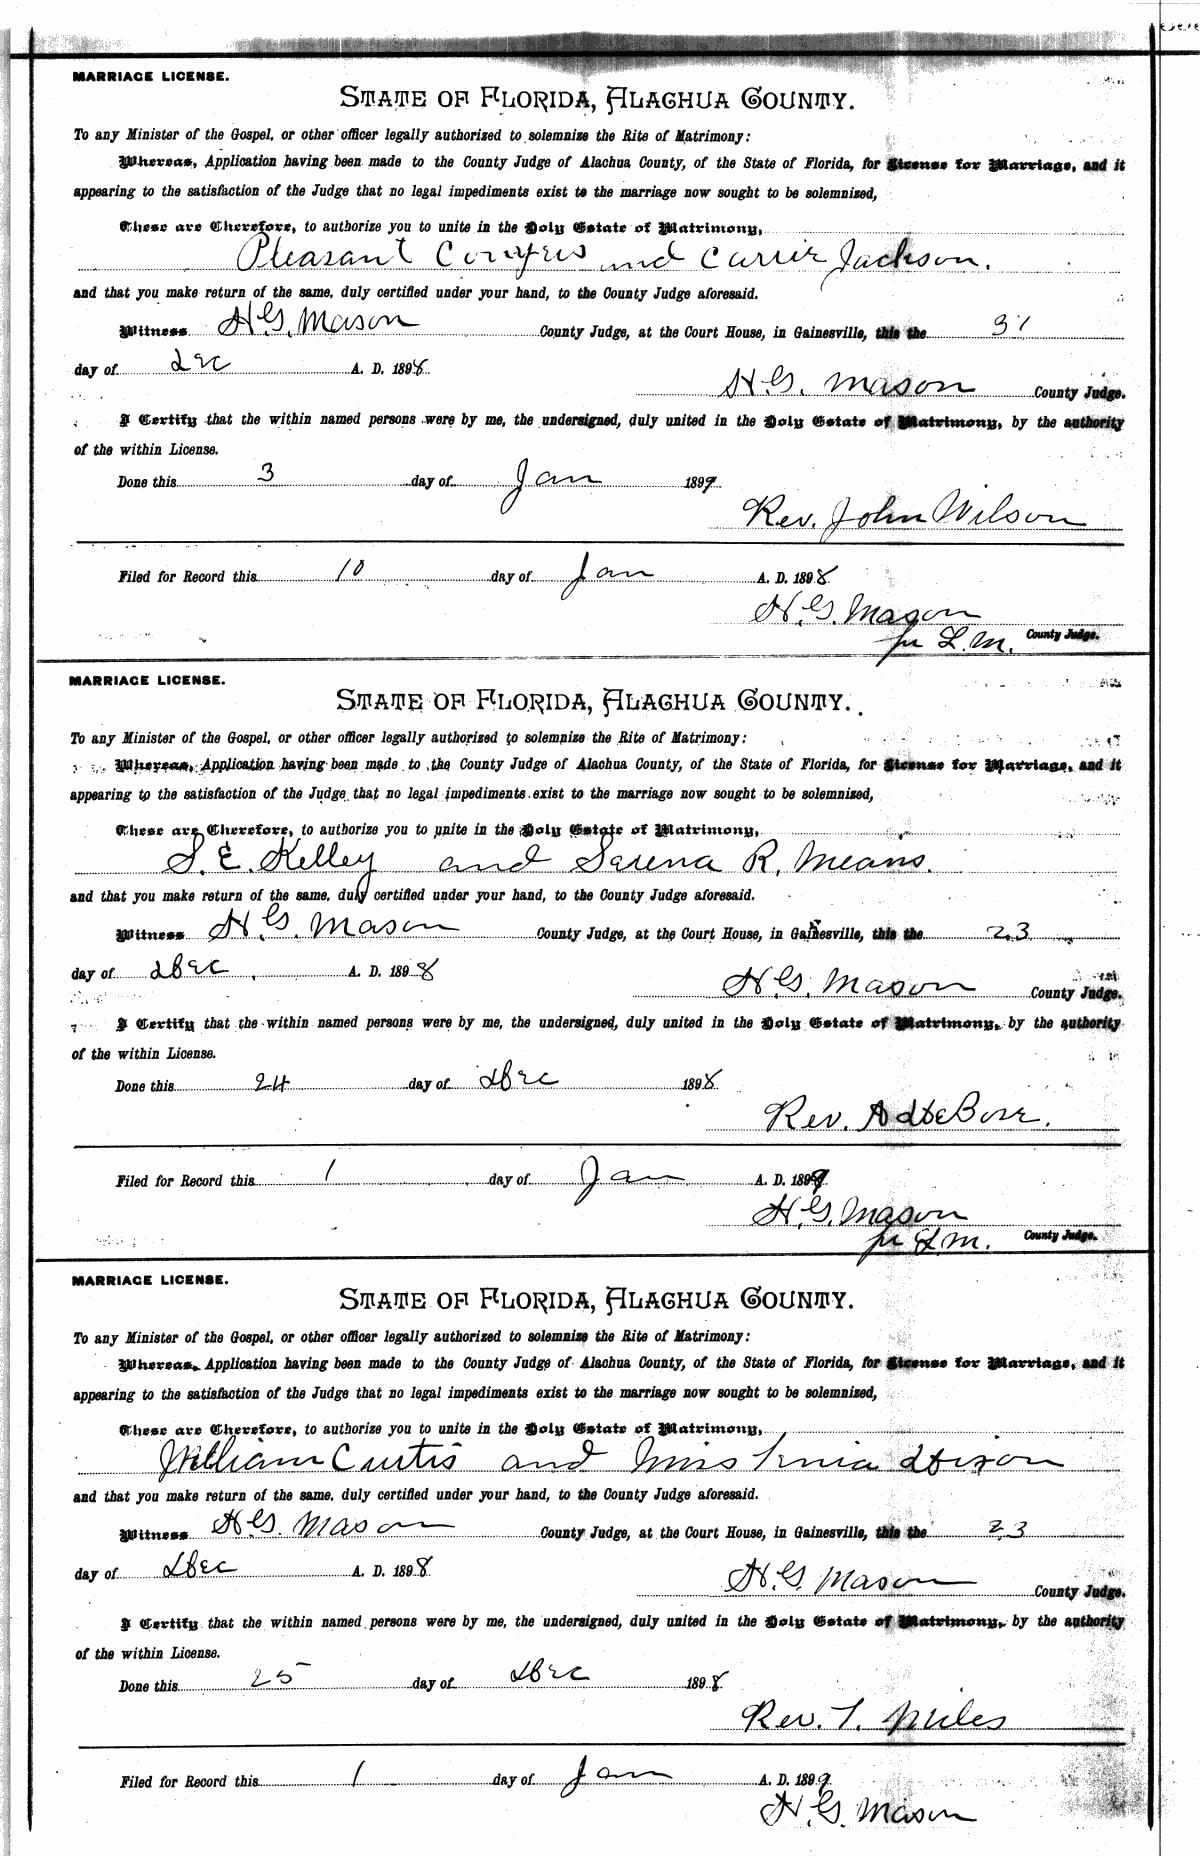 MARRIAGE LICENSE.
STATE OF FLORIDA, ALACHUA COUNTY.
To any Minister of the Gospel, or other officer legally authorized to solemnize the Rite of Matrimony:
Whereas, Application having been made to the County Judge of Alachua County, of the State of Florida, for License for Marriage, and it
appearing to the satisfaction of the Judge that no legal impediments exist to the marriage now sought to be solemnized,
These are Therefore, to authorize you to unite in the Holy Estate of Matrimony,
Pleasant Conyers and Carrie Jackson.
and that you make return of the same, duly certified under your hand, to the County Judge aforesaid.
Witness H.G. Mason County Judge, at the Court House, in Gainesville, this the 31
day of Dec A. D. 1898
H.G. Mason County Judge.
I Certify that the within named persons were by me, the undersigned, duly united in the Holy Estate of Matrimony, by the authority
of the within License.
Done this 3 day of Jan 1899
Rev. John Wilson
Filed for Record this 10 day of Jan A. D. 1898
H.G. Mason
pr L.M. County Judge.
MARRIAGE LICENSE.
STATE OF FLORIDA, ALACHUA COUNTY.
To any Minister of the Gospel, or other officer legally authorized to solemnize the Rite of Matrimony:
Whereas, Application having been made to the County Judge of Alachua County, of the State of Florida, for License for Marriage, and it
appearing to the satisfaction of the Judge that no legal impediments exist to the marriage now sought to be solemnized,
These are Therefore, to authorize you to unite in the Holy Estate of Matrimony,
S. E. Kelley and Serena R. Means.
and that you make return of the same, duly certified under your hand, to the County Judge aforesaid.
Witness H.G. Mason County Judge, at the Court House, in Gainesville, this the 23
day of Dec A. D. 1898
H.G. Mason County Judge.
I Certify that the within named persons were by me, the undersigned, duly united in the Holy Estate of Matrimony, by the authority
of the within License.
Done this 24 day of Dec 1898
Rev. A DeBose.
Filed for Record this 1 day of Jan A. D. 1899
H.G. Mason
pr L.M. County Judge.
MARRIAGE LICENSE.
STATE OF FLORIDA, ALACHUA COUNTY.
To any Minister of the Gospel, or other officer legally authorized to solemnize the Rite of Matrimony:
Whereas, Application having been made to the County Judge of Alachua County, of the State of Florida, for License for Marriage, and it
appearing to the satisfaction of the Judge that no legal impediments exist to the marriage now sought to be solemnized,
These are Therefore, to authorize you to unite in the Holy Estate of Matrimony,
William Curtis and Miss Dixon
and that you make return of the same, duly certified under your hand, to the County Judge aforesaid.
Witness H.G. Mason County Judge, at the Court House, in Gainesville, this the 23
day of Dec A. D. 1898
H.G. Mason County Judge.
I Certify that the within named persons were by me, the undersigned, duly united in the Holy Estate of Matrimony, by the authority
of the within License.
Done this 25 day of Dec 1898
Rev. T. Miles
Filed for Record this 1 day of Jan A. D. 1899
H.G. Mason